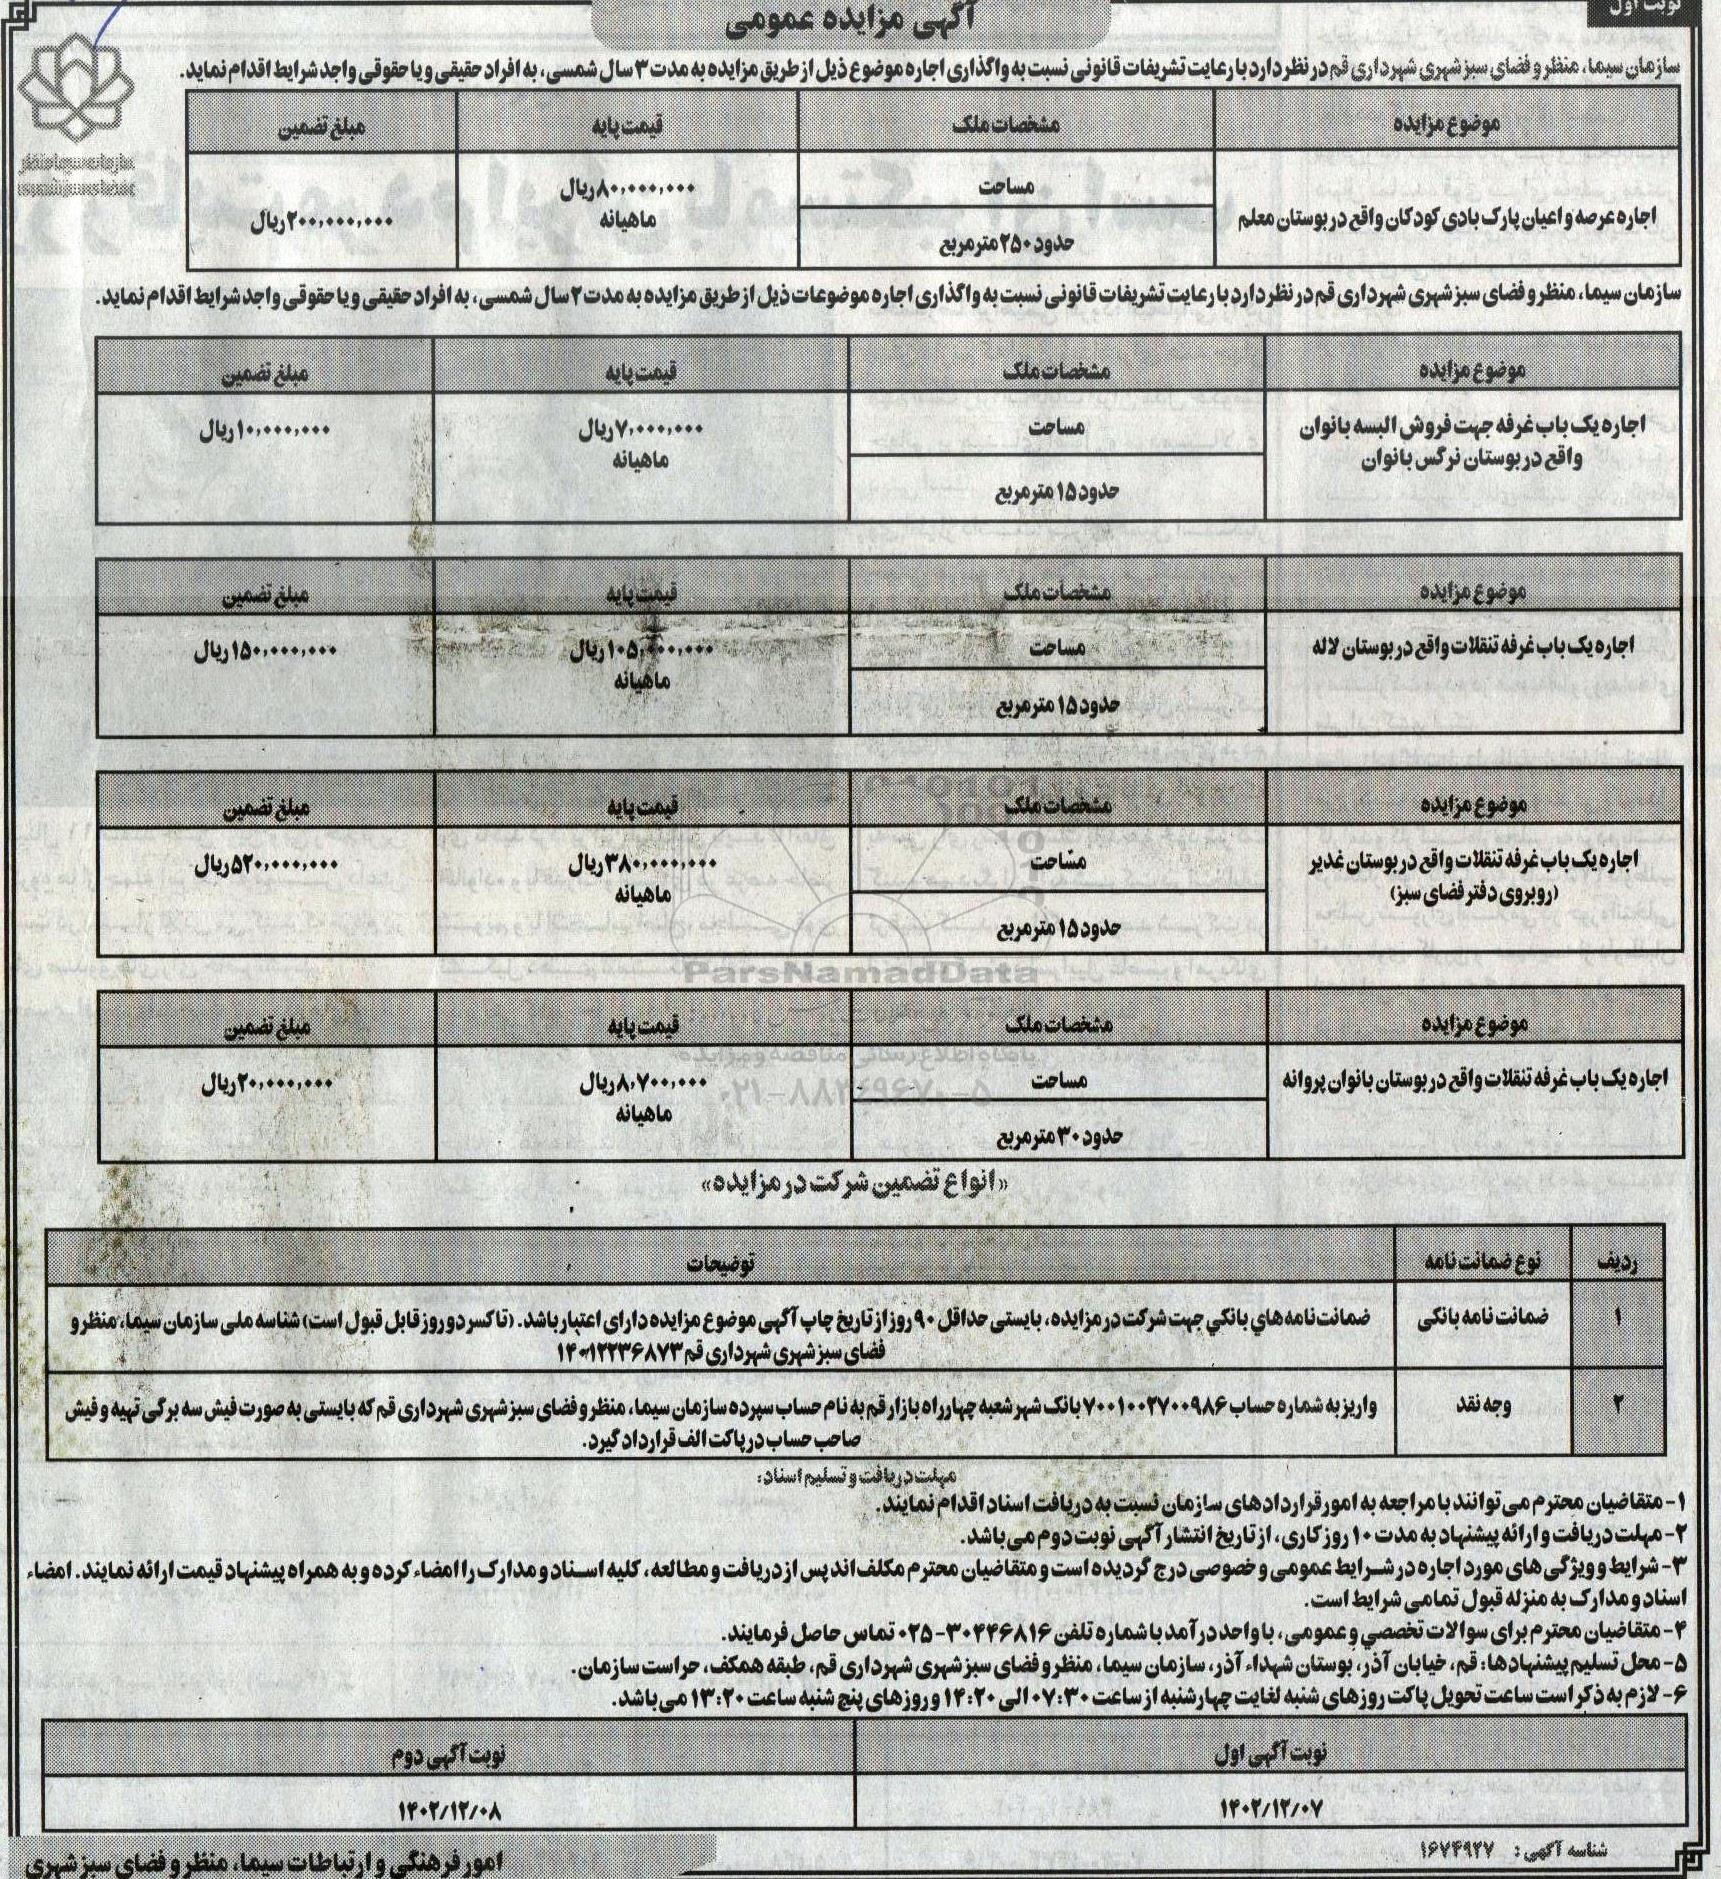 نوبت اول
آگهی مزایده عمومی
سازمان سیما، منظر و فضای سبز شهری شهرداری قم در نظر دارد با رعایت تشریفات قانونی نسبت به واگذاری اجاره موضوع ذیل از طریق مزایده به مدت ۳ سال شمسی، به افراد حقیقی و یا حقوقی واجد شرایط اقدام نماید.
سازمان سیما، منظر
و فضای سبز شهری
موضوع مزایده مشخصات ملک قیمت پایه مبلغ تضمین
اجاره عرصه و اعیان پارک بادی کودکان واقع در بوستان معلم مساحت ۸۰،۰۰۰،۰۰۰ ریال ۲۰۰،۰۰۰،۰۰۰ ریال
حدود ۲۵۰ مترمربع ماهیانه
سازمان سیما، منظر و فضای سبز شهری شهرداری قم در نظر دارد با رعایت تشریفات قانونی نسبت به واگذاری اجاره موضوعات ذیل از طریق مزایده به مدت ۲ سال شمسی، به افراد حقیقی و یا حقوقی واجد شرایط اقدام نماید.
موضوع مزایده مشخصات ملک قیمت پایه مبلغ تضمین
اجاره یک باب غرفه جهت فروش البسه بانوان مساحت ۷،۰۰۰،۰۰۰ ریال ۱۰،۰۰۰،۰۰۰ ریال
واقع در بوستان نرگس بانوان ماهیانه
حدود ۱۵ مترمربع
موضوع مزایده مشخصات ملک قیمت پایه مبلغ تضمین
اجاره یک باب غرفه تنقلات واقع در بوستان لاله مساحت ۱۰۵،۰۰۰،۰۰۰ ریال ۱۵۰،۰۰۰،۰۰۰ ریال
ماهیانه
حدود ۱۵ مترمربع
موضوع مزایده مشخصات ملک قیمت پایه مبلغ تضمین
اجاره یک باب غرفه تنقلات واقع در بوستان غدیر مساحت ۳۸۰،۰۰۰،۰۰۰ ریال ۵۲۰،۰۰۰،۰۰۰ ریال
(روبروی دفتر فضای سبز) ماهیانه
حدود ۱۵ مترمربع
ParsNamadData
موضوع مزایده مشخصات ملک قیمت پایه مبلغ تضمین
پایگاه اطلاع رسانی مناقصه و مزایده
اجاره یک باب غرفه تنقلات واقع در بوستان بانوان پروانه مساحت ۸،۷۰۰،۰۰۰ ریال ۲۰،۰۰۰،۰۰۰ ریال
ماهیانه
حدود ۳۰ مترمربع
«انواع تضمین شرکت در مزایده»
ردیف نوع ضمانت نامه توضیحات
۱ ضمانت نامه بانکی ضمانت نامه‌هاي بانکي جهت شرکت در مزایده، بایستی حداقل ۹۰ روز از تاریخ چاپ آگهی موضوع مزایده دارای اعتبار باشد. (تا کسر دو روز قابل قبول است) شناسه ملی سازمان سیما، منظر و
فضای سبز شهری شهرداری قم ۱۴۰۱۲۲۳۶۸۷۳
۲ وجه نقد واریز به شماره حساب ۷۰۰۱۰۰۲۷۰۰۹۸۶ بانک شهر شعبه چهارراه بازار قم به نام حساب سپرده سازمان سیما، منظر و فضای سبز شهری شهرداری قم که بایستی به صورت فیش سه برگی تهیه و فیش
صاحب حساب در پاکت الف قرار داد گیرد.
مهلت دریافت و تسلیم اسناد:
۱- متقاضیان محترم می‌توانند با مراجعه به امور قراردادهای سازمان نسبت به دریافت اسناد اقدام نمایند.
۲- مهلت دریافت و ارائه پیشنهاد به مدت ۱۰ روز کاری، از تاریخ انتشار آگهی نوبت دوم می‌باشد.
۳- شرایط و ویژگی های مورد اجاره در شرایط عمومی و خصوصی درج گردیده است و متقاضیان محترم مکلف‌اند پس از دریافت و مطالعه، کلیه اسناد و مدارک را امضاء کرده و به همراه پیشنهاد قیمت ارائه نمایند. امضاء
اسناد و مدارک به منزله قبول تمامی شرایط است.
۴- متقاضیان محترم برای سوالات تخصصي و عمومی، با واحد درآمد با شماره تلفن ۳۰۴۴۶۸۱۶-۰۲۵ تماس حاصل فرمایند.
۵- محل تسلیم پیشنهادها: قم، خیابان آذر، بوستان شهداء آذر، سازمان سیما، منظر و فضای سبز شهری شهرداری قم، طبقه همکف، حراست سازمان.
۶- لازم به ذکر است ساعت تحویل پاکت روزهای شنبه لغایت چهارشنبه از ساعت ۰۷:۳۰ الی ۱۴:۲۰ و روزهای پنج شنبه ساعت ۱۳:۲۰ می باشد.
نوبت آگهی اول نوبت آگهی دوم
۱۴۰۲/۱۲/۰۷ ۱۴۰۲/۱۲/۰۸
شناسه آگهی: ۱۶۷۴۹۲۷
امور فرهنگی و ارتباطات سیما، منظر و فضای سبز شهری